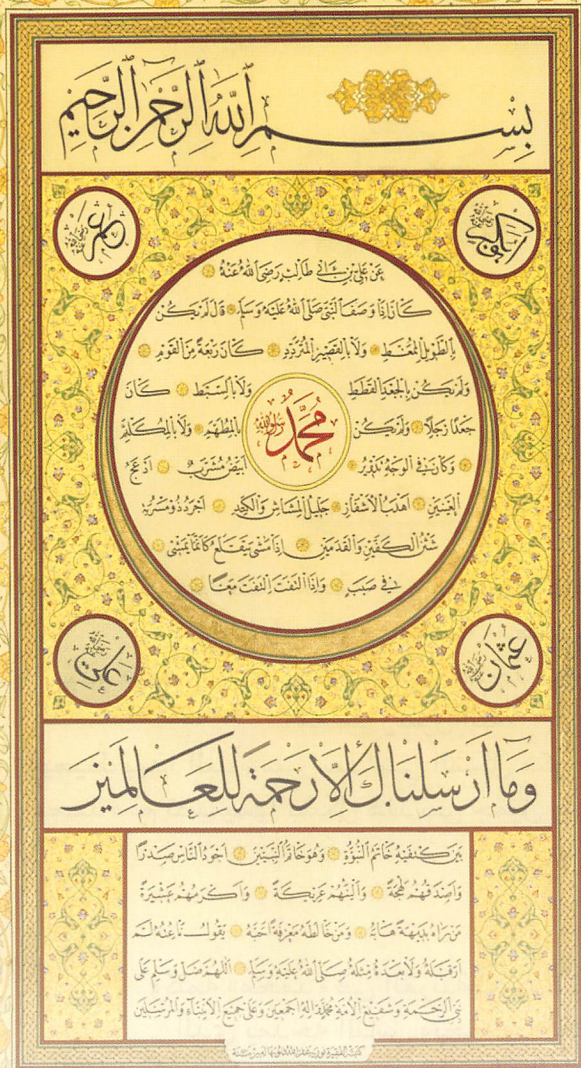 بِسْمِ اللّٰهِ الرَّحْمٰنِ الرَّحِيمِ
ابوبكر رضی الله عنه
عمر رضی الله عنه
عَنْ عَلِيِّ بْنِ اَبِي طَالِبٍ رَضِيَ اللّٰهُ عَنْهُ
كَانَ اِذَا وَصَفَ النَّبِيَّ صَلَّى اللّٰهُ عَلَيْهِ وَسَلَّمَ قَالَ لَمْ يَكُنْ
بِالطَّوِيلِ الْمُمَّغِطِ وَلَا بِالْقَصِيرِ الْمُتَرَدِّدِ كَانَ رَبْعَةً مِنَ الْقَوْمِ
وَلَمْ يَكُنْ بِالْجَعْدِ الْقَطَطِ وَلَا بِالسَّبِطِ كَانَ
جَعْدًا رَجِلًا وَلَمْ يَكُنْ بِالْمُطَهَّمِ وَلَا بِالْمُكَلْثَمِ
مُحَمَّد رسول الله
وَكَانَ فِي الْوَجْهِ تَدْوِيرٌ اَبْيَضُ مُشْرَبٌ اَدْعَجُ
الْعَيْنَيْنِ اَهْدَبُ الْاَشْفَارِ جَلِيلُ الْمُشَاشِ وَالْكَتَدِ اَجْرَدُ ذُو مَسْرُبَةٍ
شَثْنُ الْكَفَّيْنِ وَالْقَدَمَيْنِ اِذَا مَشٰى يَتَقَلَّعُ كَاَنَّمَا يَمْشِي
فِي صَبَبٍ وَاِذَا الْتَفَتَ الْتَفَتَ مَعًا
عثمان رضی الله عنه
علی رضی الله عنه
وَمَا اَرْسَلْنَاكَ اِلَّا رَحْمَةً لِلْعَالَمِينَ
بَيْنَ كَتِفَيْهِ خَاتَمُ النُّبُوَّةِ وَهُوَ خَاتَمُ النَّبِيِّينَ اَجْوَدُ النَّاسِ صَدْرًا
وَاَصْدَقُهُمْ لَهْجَةً وَاَلْيَنُهُمْ عَرِيكَةً وَاَكْرَمُهُمْ عَشِيرَةً
مَنْ رَاٰهُ بَدِيهَةً هَابَهُ وَمَنْ خَالَطَهُ مَعْرِفَةً اَحَبَّهُ يَقُولُ نَاعِتُهُ لَمْ
اَرَ قَبْلَهُ وَلَا بَعْدَهُ مِثْلَهُ صَلَّى اللّٰهُ عَلَيْهِ وَسَلَّمَ اَللّٰهُمَّ صَلِّ وَسَلِّمْ عَلٰى
نَبِيِّ الرَّحْمَةِ وَشَفِيعِ الْاُمَّةِ مُحَمَّدٍ وَاٰلِهِ اَجْمَعِينَ وَعَلٰى جَمِيعِ الْاَنْبِيَاءِ وَالْمُرْسَلِينَ